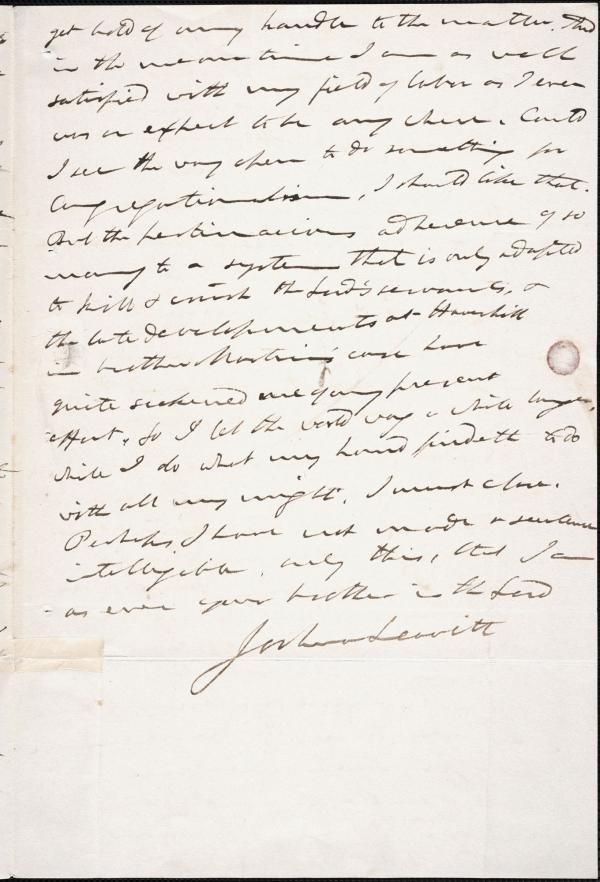 get hold of any handle to the matter. And
in the mean time I am as well
satisfied with my field of labor as I ever
was or expect to be any where. Could
I see the way open to do something for
Congregationalism, I should like that.
But the pertinacious adherence of so
many to a system that is only adapted
to kill & crush the Lord's servants, &
the late developements at Haverhill
in brother Martin's case have
quite sickened me of any present
effort. So I let the world wag a while longer,
while I do what my hand findeth to do
with all my might. I must close.
Perhaps I have not made a sentence
intelligible, only this, that I am
as ever your brother in the Lord
Joshua Leavitt